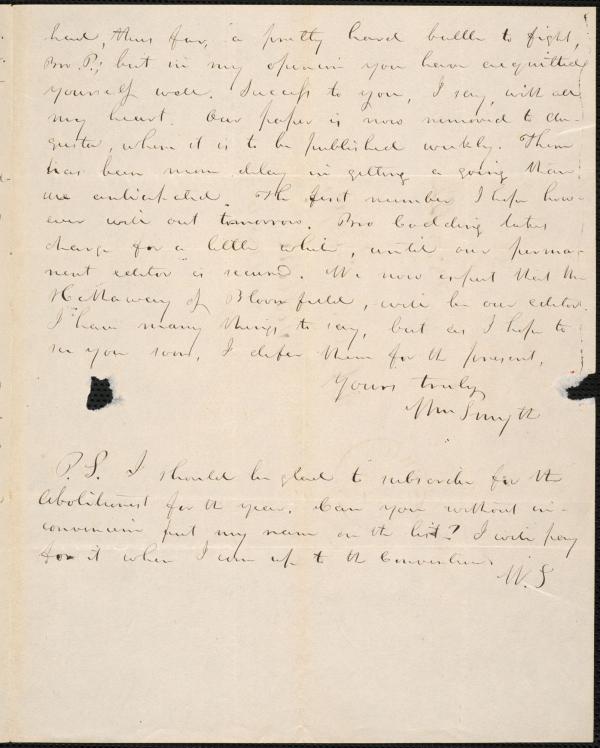 had, thus far, a pretty hard battle to fight,
Bro. P.; but in my opinion you have acquitted
yourself well. Success to you, I say, with all
my heart. Our paper is now removed to Au-
gusta, where it is to be published weekly. There
has been more delay in getting a going than
we anticipated. The first number I hope how-
ever will out tomorrow. Bro Codding takes
charge for a little while, until our perma-
nent editor is secured. We now expect that
of Bloomfield, will be our editor.
I have many things to say, but as I hope to
see you soon, I defer them for the present.
Yours truly
Wm Smyth
P.S. I should be glad to subscribe for the
Abolitionist for the year. Can you without in-
convenience put my name on the list? I will pay
for it when I come up to the Convention.
W. S